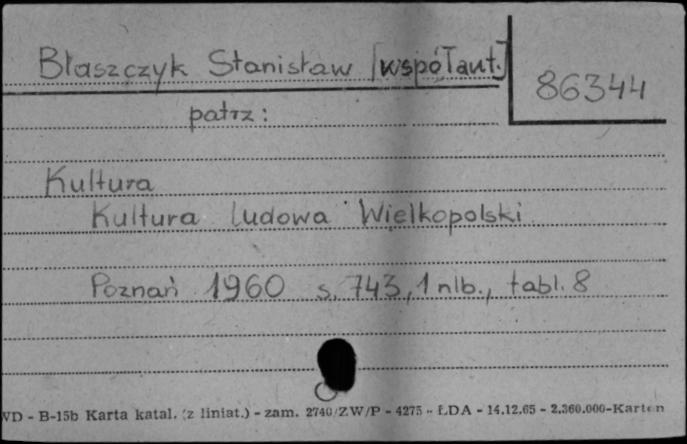 Błaszczyk Stanisław [współaut.]
86344
patrz:
Kultura
Kultura ludowa Wielkopolski
Poznań 1960 s. 743, 1 nlb., tabl. 8
WD - B-15b Karta katal. (z liniat.) - zam. 2740/ZW/P - 4275 - ŁDA - 14.12.65 - 2.360.000-Karton